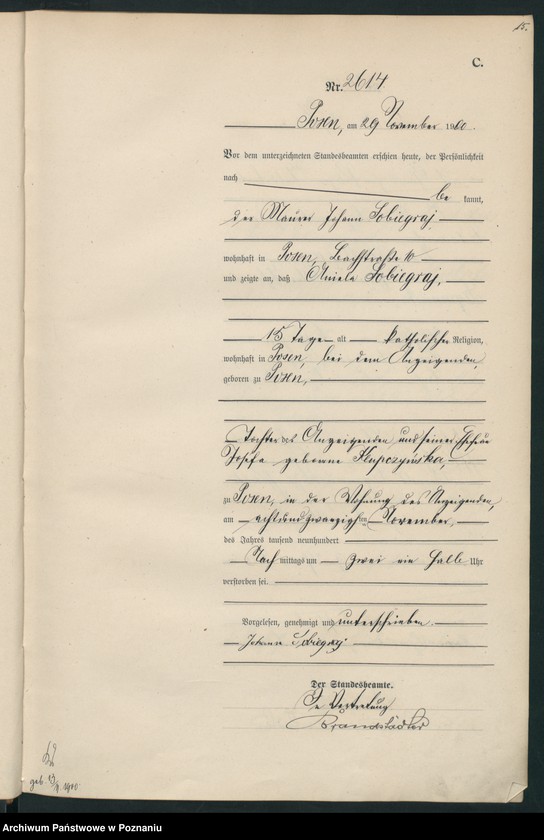 15.
C.
Nr. 2614
Posen, am 29 November 1900.
Vor dem unterzeichneten Standesbeamten erschien heute, der Persönlichkeit
nach
be kannt,
der Maurer Johann Sobiegraj
wohnhaft in Posen, Bachstraße 10
und zeigte an, daß Aniela Sobiegraj,
15 Tage alt katholischer Religion,
wohnhaft in Posen, bei dem Anzeigenden,
geboren zu Posen,
Tochter des Anzeigenden und seiner Ehefrau
Josefa geborene
zu Posen, in der Wohnung des Anzeigenden,
am achtundzwanzigsten November,
des Jahres tausend neunhundert
Nach mittags um zwei ein halb Uhr
verstorben sei.
Vorgelesen, genehmigt und unterschrieben
Johann Sobiegraj
Der Standesbeamte.
In Vertretung
geb. 1900
Archiwum Państwowe w Poznaniu